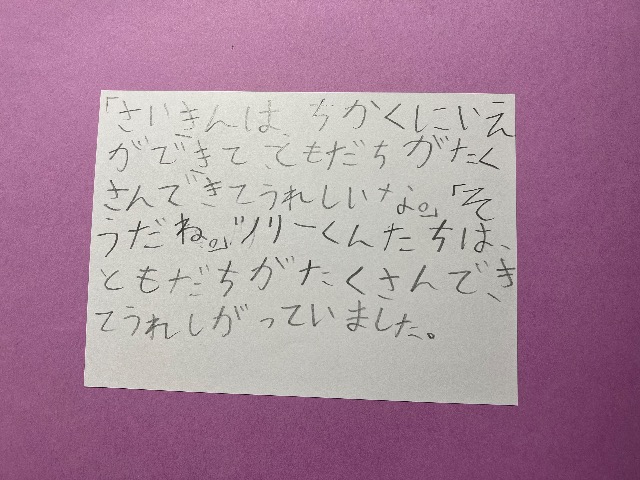 「さいきんは、ちかくにいえ
ができて ともだちがたく
さんできてうれしいな。」「そ
うだね。」ツリーくんたちは、
ともだちがたくさんでき
てうれしがっていました。